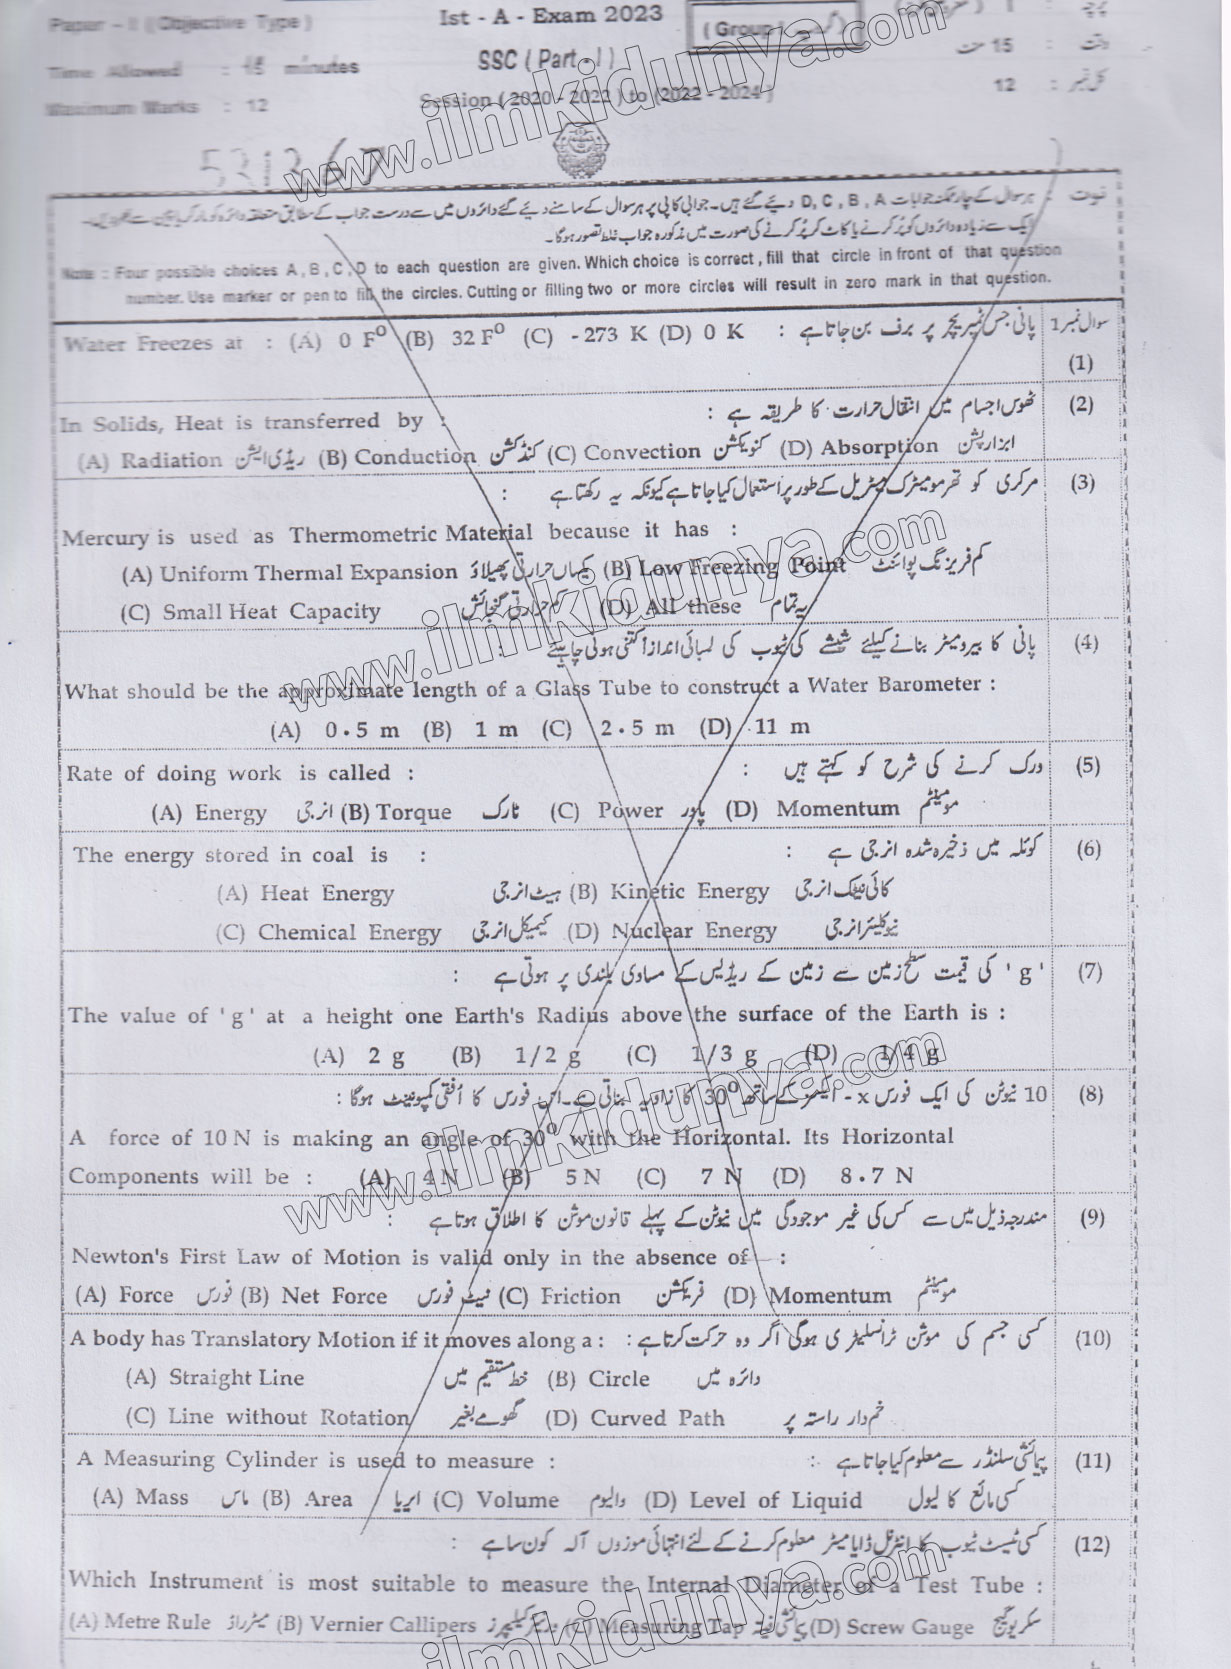 Paper - I ( Objective Type )
Ist - A - Exam 2023
( Group I گروپ )
Time Allowed : 15 minutes
SSC ( Part - I )
وقت : 15 منٹ
Maximum Marks : 12
Session ( 2020 - 2022 ) to ( 2022 - 2024 )
کل نمبر : 12
نوٹ : ہر سوال کے چار ممکنہ جوابات D, C, B, A دیئے گئے ہیں۔ جوابی کاپی پر ہر سوال کے سامنے دیئے گئے دائروں میں سے درست جواب کے مطابق متعلقہ دائرہ کو مارکر یا پین سے بھر دیں۔
ایک سے زیادہ دائروں کو پُر کرنے یا کاٹ کر پُر کرنے کی صورت میں مذکورہ جواب غلط تصور ہوگا۔
Note : Four possible choices A , B , C , D to each question are given. Which choice is correct , fill that circle in front of that question
number. Use marker or pen to fill the circles. Cutting or filling two or more circles will result in zero mark in that question.
سوال نمبر 1 پانی جس ٹمپریچر پر برف بن جاتا ہے :
Water Freezes at : (A) 0 F⁰ (B) 32 F⁰ (C) - 273 K (D) 0 K
(1)
(2) ٹھوس اجسام میں انتقال حرارت کا طریقہ ہے :
In Solids, Heat is transferred by :
(A) Radiation ریڈی ایشن (B) Conduction کنڈکشن (C) Convection کنویکشن (D) Absorption ابزارپشن
(3) مرکری کو تھرمومیٹرک میٹریل کے طور پر استعمال کیا جاتا ہے کیونکہ یہ رکھتا ہے :
Mercury is used as Thermometric Material because it has :
(A) Uniform Thermal Expansion یکساں حرارتی پھیلاؤ (B) Low Freezing Point کم فریزنگ پوائنٹ
(C) Small Heat Capacity کم حرارتی گنجائش (D) All these یہ تمام
(4) پانی کا بیرومیٹر بنانے کیلئے شیشے کی ٹیوب کی لمبائی اندازاً کتنی ہونی چاہیئے :
What should be the approximate length of a Glass Tube to construct a Water Barometer :
(A) 0.5 m (B) 1 m (C) 2.5 m (D) 11 m
(5) ورک کرنے کی شرح کو کہتے ہیں :
Rate of doing work is called :
(A) Energy انرجی (B) Torque ٹارک (C) Power پاور (D) Momentum مومینٹم
(6) کوئلہ میں ذخیرہ شدہ انرجی ہے :
The energy stored in coal is :
(A) Heat Energy ہیٹ انرجی (B) Kinetic Energy کائی نیٹک انرجی
(C) Chemical Energy کیمیکل انرجی (D) Nuclear Energy نیوکلیئر انرجی
(7) ' g ' کی قیمت سطح زمین سے زمین کے ریڈیس کے مساوی بلندی پر ہوتی ہے :
The value of ' g ' at a height one Earth's Radius above the surface of the Earth is :
(A) 2 g (B) 1/2 g (C) 1/3 g (D) 1/4 g
(8) 10 نیوٹن کی ایک فورس x - ایکسز کے ساتھ 30⁰ کا زاویہ بناتی ہے۔ اس فورس کا اُفقی کمپونینٹ ہوگا :
A force of 10 N is making an angle of 30⁰ with the Horizontal. Its Horizontal
Components will be : (A) 4 N (B) 5 N (C) 7 N (D) 8.7 N
(9) مندرجہ ذیل میں سے کس کی غیر موجودگی میں نیوٹن کے پہلے قانون موشن کا اطلاق ہوتا ہے :
Newton's First Law of Motion is valid only in the absence of :
(A) Force فورس (B) Net Force نیٹ فورس (C) Friction فریکشن (D) Momentum مومینٹم
(10) کسی جسم کی موشن ٹرانسلیٹری ہوگی اگر وہ حرکت کرتا ہے :
A body has Translatory Motion if it moves along a :
(A) Straight Line خط مستقیم میں (B) Circle دائرہ میں
(C) Line without Rotation گھومے بغیر (D) Curved Path خم دار راستہ پر
(11) پیمائشی سلنڈر سے معلوم کیا جاتا ہے :
A Measuring Cylinder is used to measure :
(A) Mass ماس (B) Area ایریا (C) Volume والیوم (D) Level of Liquid کسی مائع کا لیول
(12) کسی ٹیسٹ ٹیوب کا انٹرنل ڈایا میٹر معلوم کرنے کے لئے انتہائی موزوں آلہ کون سا ہے :
Which Instrument is most suitable to measure the Internal Diameter of a Test Tube :
(A) Metre Rule میٹر راڈ (B) Vernier Callipers ورنیئر کیلیپرز (C) Measuring Tap پیمائشی فیتہ (D) Screw Gauge سکریو گیج
www.ilmkidunya.com
www.ilmkidunya.com
www.ilmkidunya.com
ilmkidunya.com